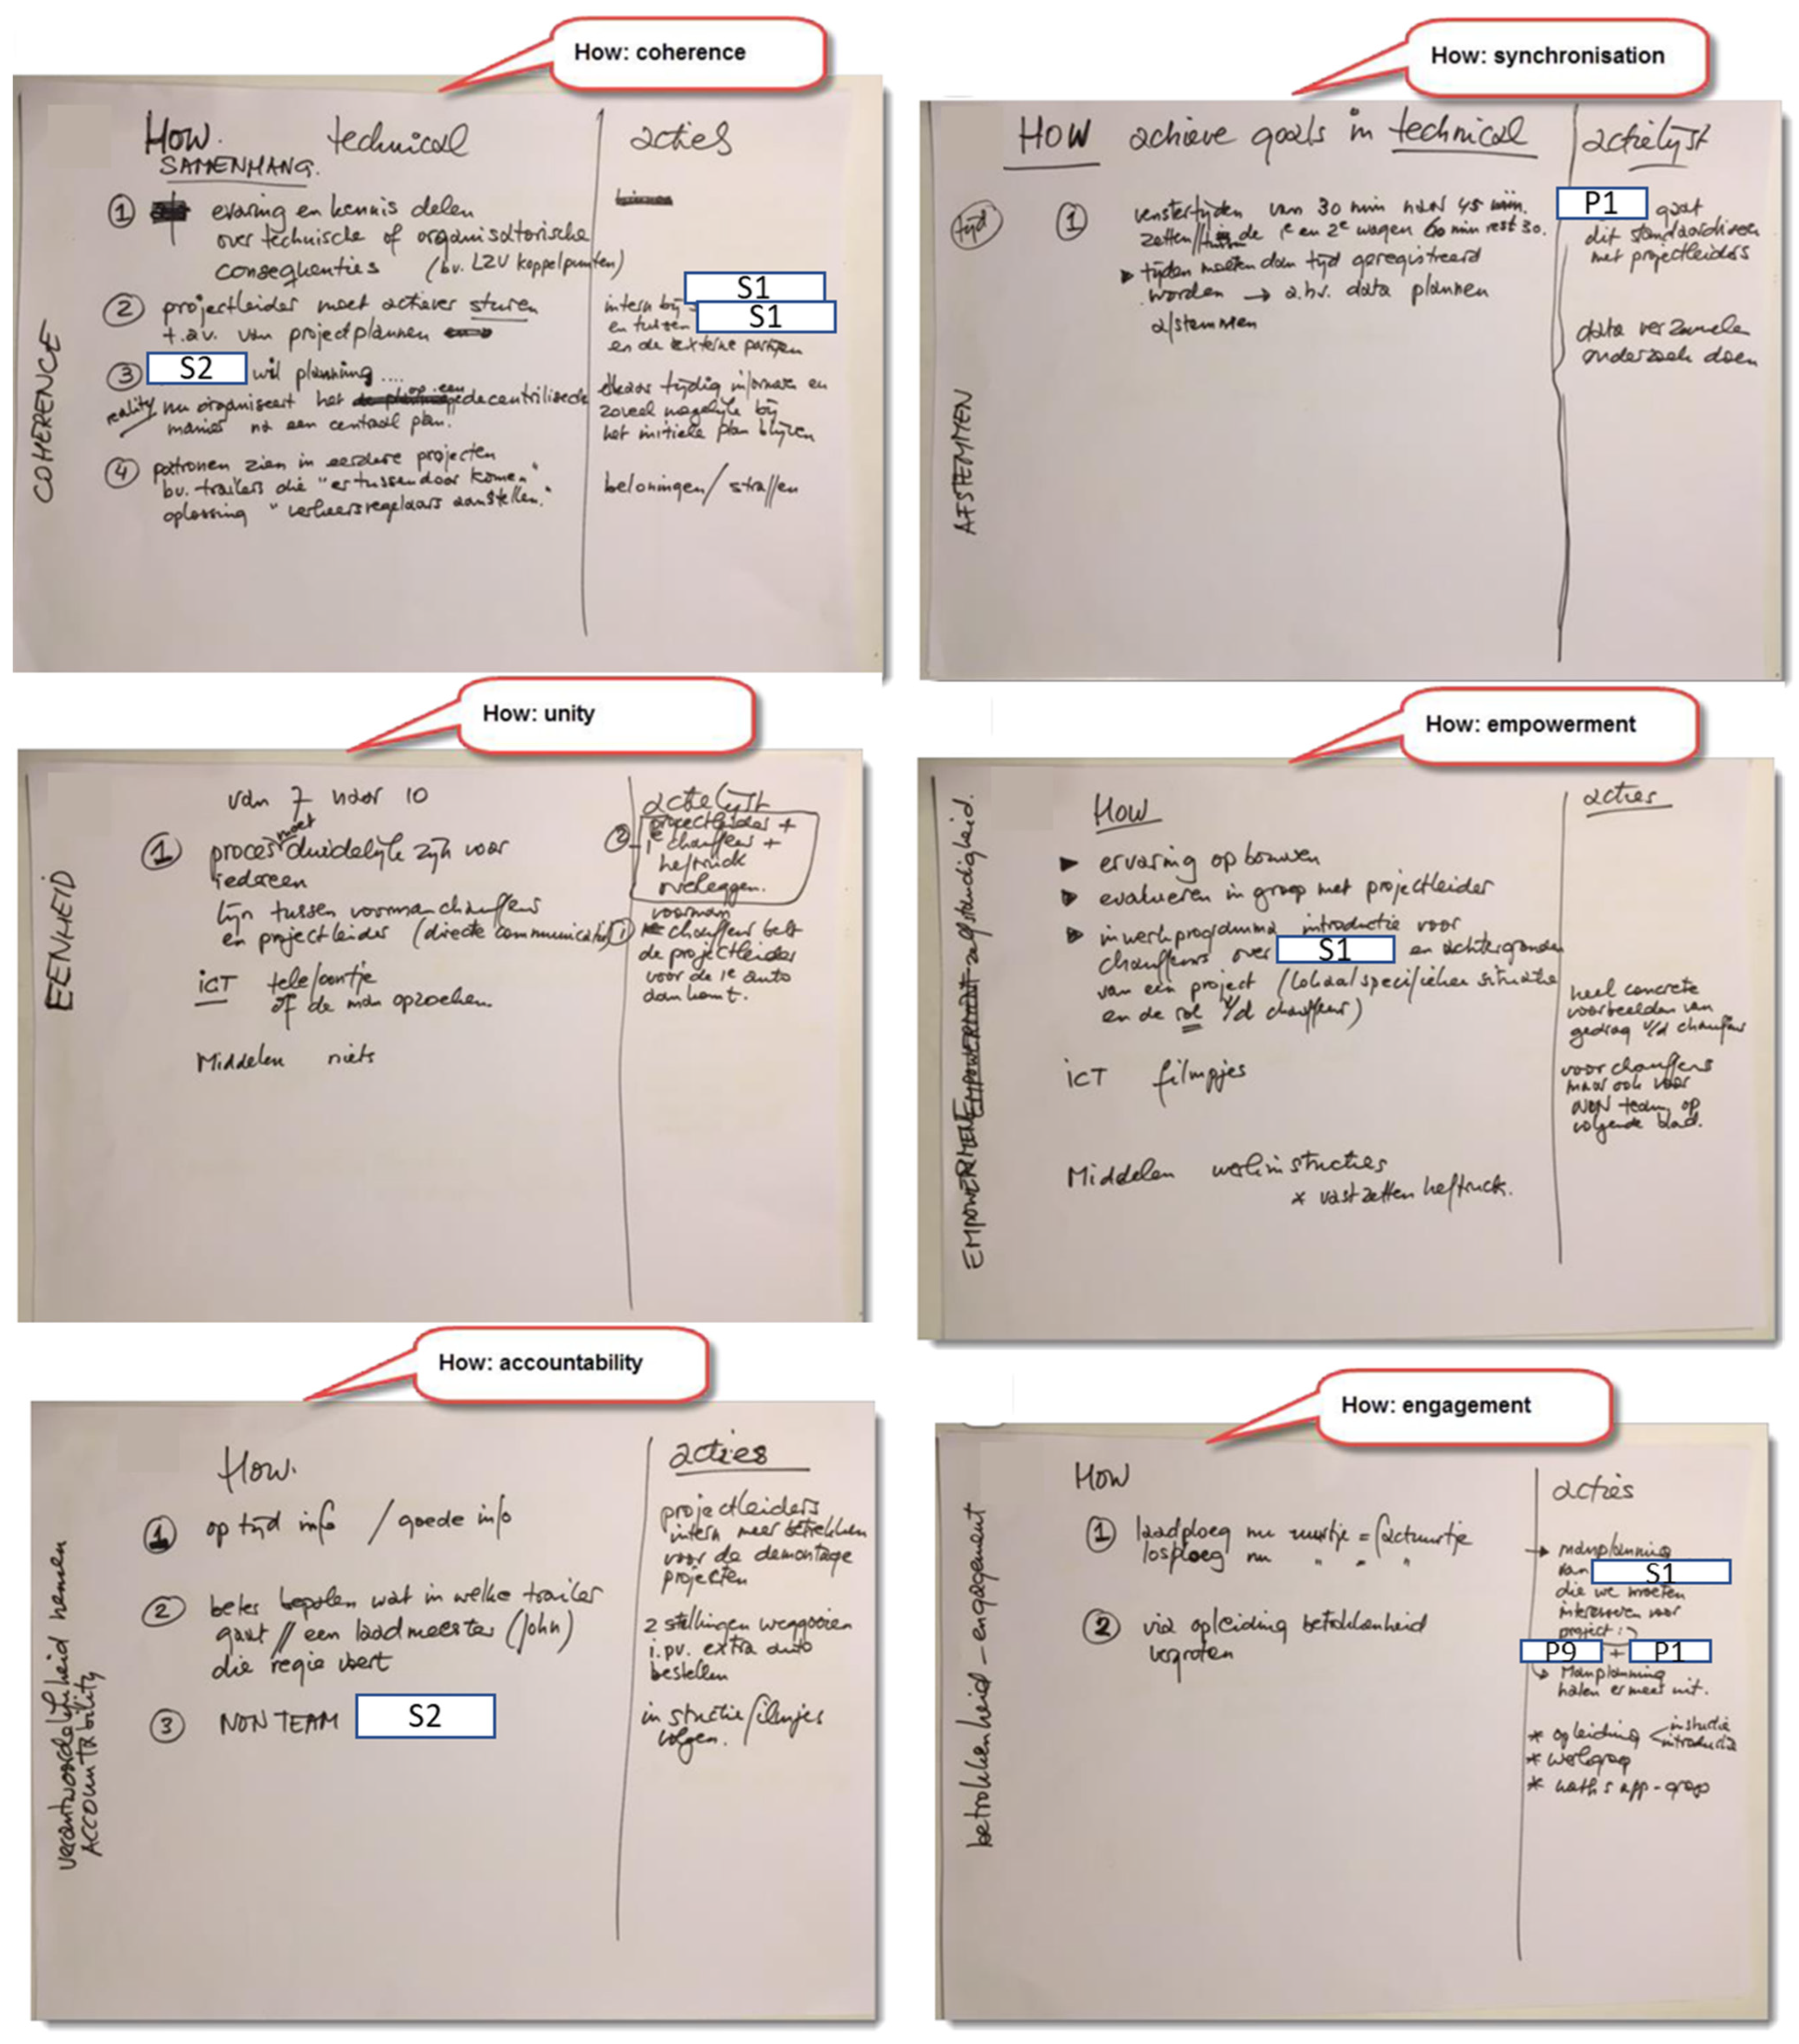 How: coherence
How. technical
SAMENHANG.
acties
COHERENCE
① ervaring en kennis delen
over technische of organisatorische
consequenties (bv. LZV koppelpunten)
② projectleider moet actiever sturen
t.a.v. van projectplannen
③ S2 wil planning....
reality nu organiseert het op een decentraliseede
manier na een centraal plan.
④ patronen zien in eerdere projecten
bv. trailers die "ertussendoor komen"
oplossing "verkeersregelaars aanstellen."
intern bij S1
en tussen S1
en de externe partijen
elkaar tijdig informeren en
zoveel mogelijk bij
het initiele plan blijven
beloningen / straffen
How: synchronisation
HOW achieve goals in technical
actielijst
AFSTEMMEN
tijd
① venstertijden van 30 min naar 45 min.
zetten // de 1e en 2e wagen 60 min rest 30.
▸ tijden moeten dan tijd geregistreerd
worden → a.h.v. data plannen
afstemmen
P1 gaat
dit standaardiseren
met projectleiders
data verzamelen
onderzoek doen
How: unity
EENHEID
van 7 naar 10
① proces moet duidelijk zijn voor
iedereen
lijn tussen voorman chauffeurs
en projectleider (directe communicatie)
ICT telefoontje
of de man opzoeken.
Middelen niets
actielijst
② projectleider +
1e chauffeur +
heftruck
overleggen.
① voorman
chauffeur belt
de projectleider
voor de 1e auto
aankomt.
How: empowerment
EMPOWERMENT zelfstandigheid.
How
acties
▸ ervaring opbouwen
▸ evalueren in groep met projectleider
▸ inwerkprogramma introductie voor
chauffeurs over S1 en achtergronden
van een project (lokaal specifieke situatie
en de rol v/d chauffeur)
ICT filmpjes
Middelen werkinstructies
* vastzetten heftruck.
heel concrete
voorbeelden van
gedrag v/d chauffeur
voor chauffeurs
maar ook voor
NON team op
volgende blad.
How: accountability
verantwoordelijkheid nemen
ACCOUNTABILITY
How.
acties
① op tijd info / goede info
② beter bepalen wat in welke trailer
gaat // een laadmeester (John)
die regie voert
③ NON TEAM S2
projectleiders
intern meer betrekken
voor de demontage
projecten
2 stellingen weggooien
i.p.v. extra auto
bestellen
instructie filmpjes
volgen.
How: engagement
betrokkenheid – engagement
HOW
acties
① laadploeg nu uurtje = factuurtje
losploeg nu " " "
② via opleiding betrokkenheid
vergroten
→ manplanning
van S1
die we moeten
interesseren voor
project :
P9 + P1
↳ Manplanning
halen er meer uit.
* opleiding < instructie
introductie
* werkgroep
* whats app-groep